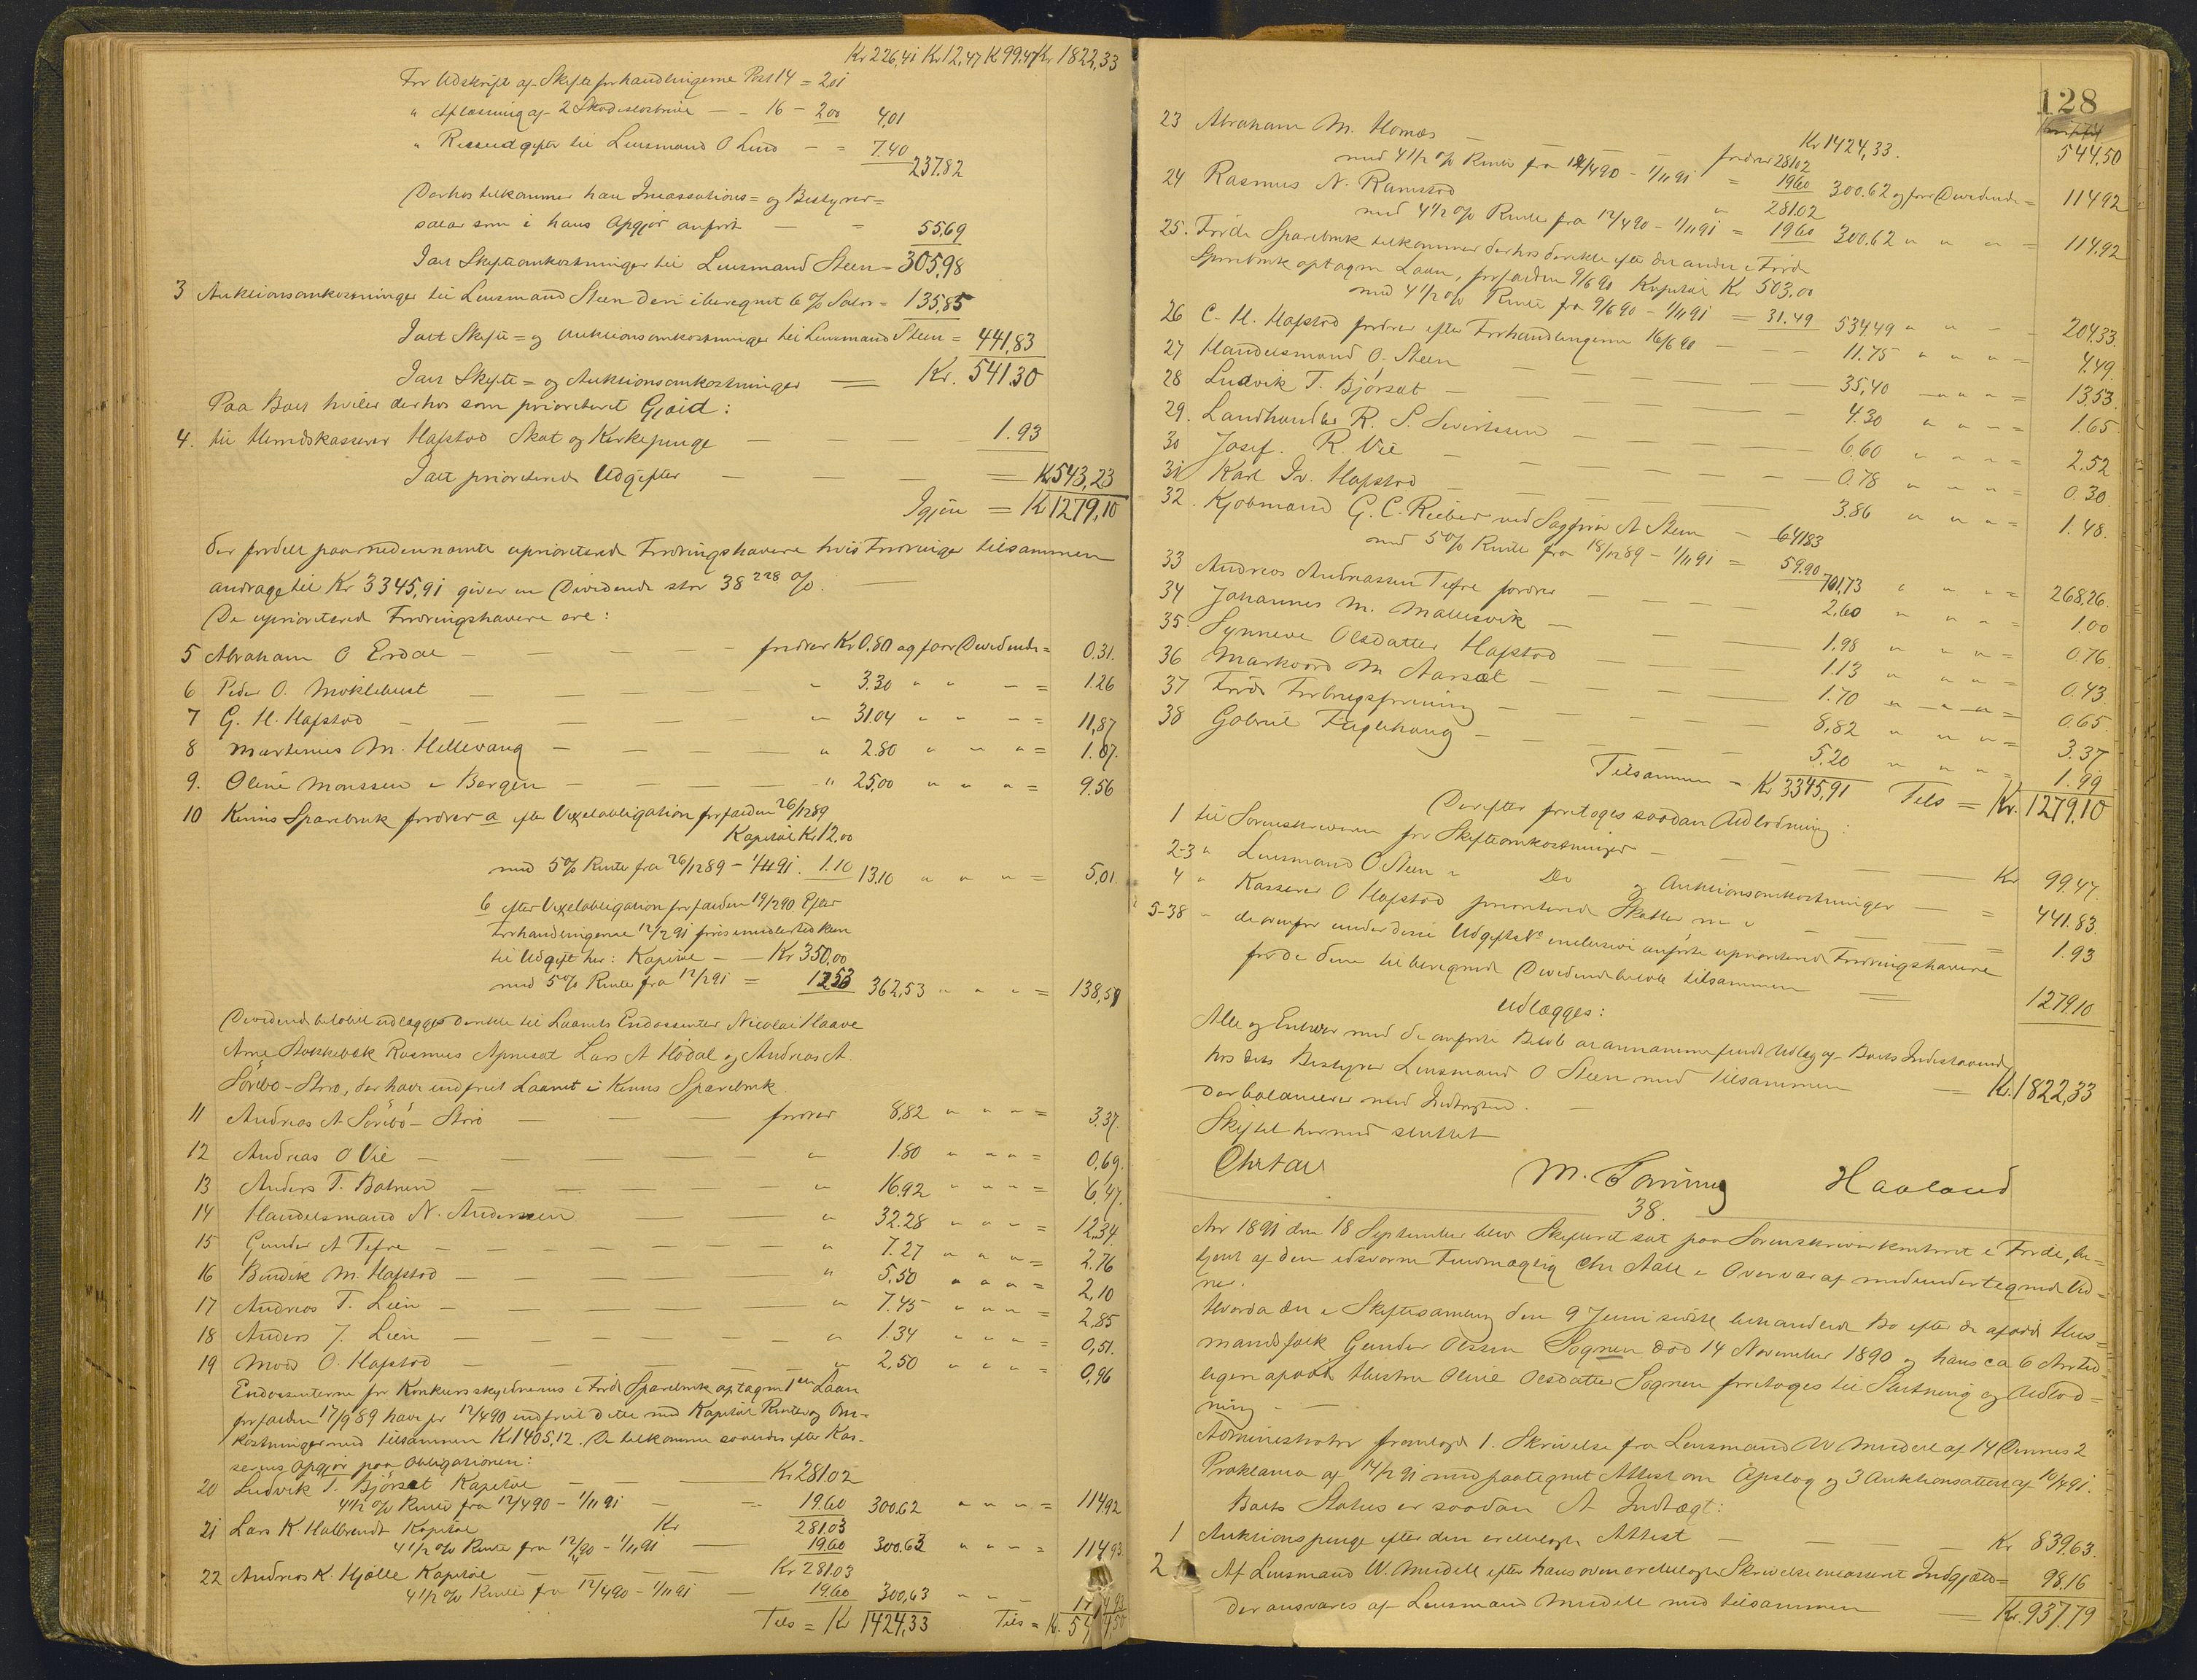 Kr 226,41 Kr 12,47 K 99,47 Kr 1822,33
For Udskrift af Skifteforhandlingerne Post 14 = 2,01
" Aflæsning af 2 Skadesløsbreve — - 16 - 2,00 4,01
" Reiseudgifter til Lensmand O Lind — - = 7.40
237.82
Derhos tilkommer han Incassations= og Bestyrer=
salær som i hans Opgjør anført — = 55,69
Ialt Skifteomkostninger til Lensmand Steen = 305,98
3 Auktionsomkostninger til Lensmand Steen deri iberegnet 6 % Salær = 135,85
Ialt Skifte= og Auktionsomkostninger til Lensmand Steen = 441,83
Ialt Skifte= og Auktionsomkostninger = Kr. 541.30
Paa Boet hviler derhos som prioriteret Gjæld:
4. til Herredskasserer Hafstad Skat og Kirkepenge — — 1.93
Ialt prioriterede Udgifter — — — = Kr 543,23
Igjen = Kr 1279,10
der fordelt paa nedennævnte uprioriterede Fordringshavere hvis Fordringer tilsammen
andrage til Kr 3345,91 giver en Dividende stor 38 228 %.
De uprioriterede Fordringshavere ere:
5 Abraham O Erdal — — — fordrer Kr 0.80 og faar Dividende = 0.31.
6 Peder O. Moklebust — — — " 3.30 " " " = 1.26
7 G. H. Hafstad — — — " 31.04 " " " = 11,87
8 Martinus M. Hellevang — — — " 2.80 " " " = 1.07.
9. Oline Monssen i Bergen — — — " 25,00 " " " = 9.56
10 Kinns Sparebank fordrer a efter Vexelobligation forfalden 26/12 89
Kapital Kr. 12,00
med 5% Rente fra 26/12 89 - 1/11 91. 1.10 13.10 " " " = 5,01.
b efter Vexelobligation forfalden 19/2 90. Efter
Forhandlingerne 12/2 91 føres imidlertid kun
til Udgift her: Kapital — Kr 350,00
med 5% Rente fra 12/2 91 = 12.53 362,53 " " " = 138,59
Dividendebeløbet udlægges derekte til Laanets Endossenter Nicolai Haave
Arne Stokkebæk Rasmus Apneset Lars A Hødal og Andreas A.
Sørebø-Strø, der have indfriet Laanet i Kinns Sparebank.
11 Andreas A Sørebø-Strø — — fordrer 8,82 " " " = 3.37.
12 Andreas O Vie — — — " 1.80 " " " = 0,69.
13 Anders T. Bolsen — — — " 16.92 " " " = 6,47.
14 Handelsmand N. Anderssen — — " 32.28 " " " = 12,34
15 Gunder A Tefre — — — " 7.27 " " " = 2.76
16 Bendik M. Hafstad — — — " 5.50 " " " = 2,10
17 Andreas T. Lien — — — " 7.45 " " " = 2,85
18 Anders J. Lien — — — " 1.34 " " " = 0,51.
19 Mons O. Hafstad — — — " 2,50 " " " = 0,96
Endossenterne for Konkursskyldnerens i Førde Sparebank optagne Laan
forfalden 17/9 89 have pr 12/4 90 indfriet dette med Kapital Renter og Om=
kostninger med tilsammen Kr 1405,12. De tilkomme saaledes efter Kas-
serens Opgjør paa Obligationen:
20 Ludvik T. Bjørsæt Kapital — — Kr 281.02
4 1/2 % Rente fra 12/4 90 - 1/11 91 — = 19.60 300.62 " " " = 114,92
21 Lars K. Halbrendt Kapital Kr 281.03
4 1/2 % Rente fra 12/4 90 - 1/11 91 — 19.60 300.63 " " " = 114,93
22 Andreas K. Hjelle Kapital — — Kr 281.03
4 1/2 % Rente fra 12/4 90 - 1/11 91 — 19.60 300,63 " " -
Tils = Kr 1424,33 Tils = Kr.
128
23 Abraham M. Homes — — — Kr 1424,33. 544,50
fordrer 281.02
med 4 1/2 % Rente fra 12/4 90 - 1/11 91 = 19.60 300.62 og faar Dividende = 114.92
24 Rasmus N. Ramstad " 281.02
med 4 1/2 % Rente fra 12/4 90 - 1/11 91 = 19.60 300.62 " " " = 114.92
25. Førde Sparebank tilkommer derhos derekte efter det andet i Førde
Sparebank optagne Laan, forfalden 9/6 90 Kapital Kr 503,00
med 4 1/2 % Rente fra 9/6 90 - 1/11 91 = 31.49 534.49 " " - = 204.33.
26 C. H. Hafstad fordrer efter Forhandlingerne 16/6 90 — — 11.75 " " " = 4.49.
27 Handelsmand O. Steen — — — 35,40 " " " = 13,53.
28 Ludvik T. Bjørsæt — — — 4.30 " " " = 1.65.
29. Landhandler R. S. Sivertssen — — — 6,60 " " " = 2,52
30 Josef R. Vie — — — 0.78 " " " = 0.30
31 Karl Iv. Hafstad — — — 3.86 " " " = 1.48.
32. Kjøbmand G. C. Rieber ved Sagfører A Steen — 641.83
med 5 % Rente fra 18/12 89 - 1/11 91 = 59.90 701,73 " " " = 268,26.
33 Andreas Andreassen Tefre fordrer — — — 2.60 " " " = 1.00
34 Johannes M. Mallesvik — — — 1,98 " " " = 0.76.
35. Synneve Olsdatter Hafstad — — — 1.13 " " " = 0.43
36 Markvard M Aarsæt — — — 1.70 " " " = 0.65.
37 Førde Forbrugsforening — — — 8,82 " " " = 3.37
38 Gabriel Fuglehaug — — — 5.20 " " " = 1.99
Tilsammen = Kr 3345,91 Tils = Kr. 1279,10
Derefter foretoges saadan Udlodning:
1 til Sorenskriveren for Skifteomkostninger — — — Kr 99.47.
2-3 " Lensmand O Steen " Do og Auktionsomkostninger — = 441.83.
4 " Kasserer O Hafstad prioriterede Skatter m v — — = 1.93
5-38 - de ovenfor under disse Udgifts No inclusive anførte uprioriterede Fordringshavere
for de dem tilberegnede Dividendebeløb tilsammen — = 1279,10
Udlægges:
Alle og Enhver med de anførte Beløb ar annammefundt Udlæg af Boets Indestaaende
hos dets Bestyrer Lensmand O Steen med tilsammen — = Kr. 1822,33
der balancerer med Indtægten. —
Skiftet hermed sluttet
Chr Aall M. Tonning Haaland
38.
Aar 1891 den 18 September blev Skifteret sat paa Sorenskriverkontoret i Førde, be=
tjent af den edsvorne Fuldmægtig Chr Aall i Overvær af medundertegnede Vid=
ner.
Hvorda det i Skiftesamling den 9 Juni sidste behandlede Bo efter de afdøde Hus=
mandsfolk Gunder Olssen Sognen død 14 November 1890 og hans ca 6 Aar tid=
ligere afdøde Hustru Oline Olsdatter Sognen foretoges til Slutning og Udlod=
ning — -
Administrator fremlagde 1. Skrivelse fra Lensmand W Meidell af 14 Dennes 2
Proklama af 14/2 91 med paategnet Attest om Opslag og 3 Auktionsattest af 10/7 91.
Boets Status er saadan A Indtægt:
1 Auktionspenge efter den ovenfor Attest — — — Kr 839,63.
2 Af Lensmand W. Meidell efter hans Skrivelse incasseret Indgjæld = 98.16
der ansvares af Lensmand Meidell med tilsammen — = Kr. 937,79